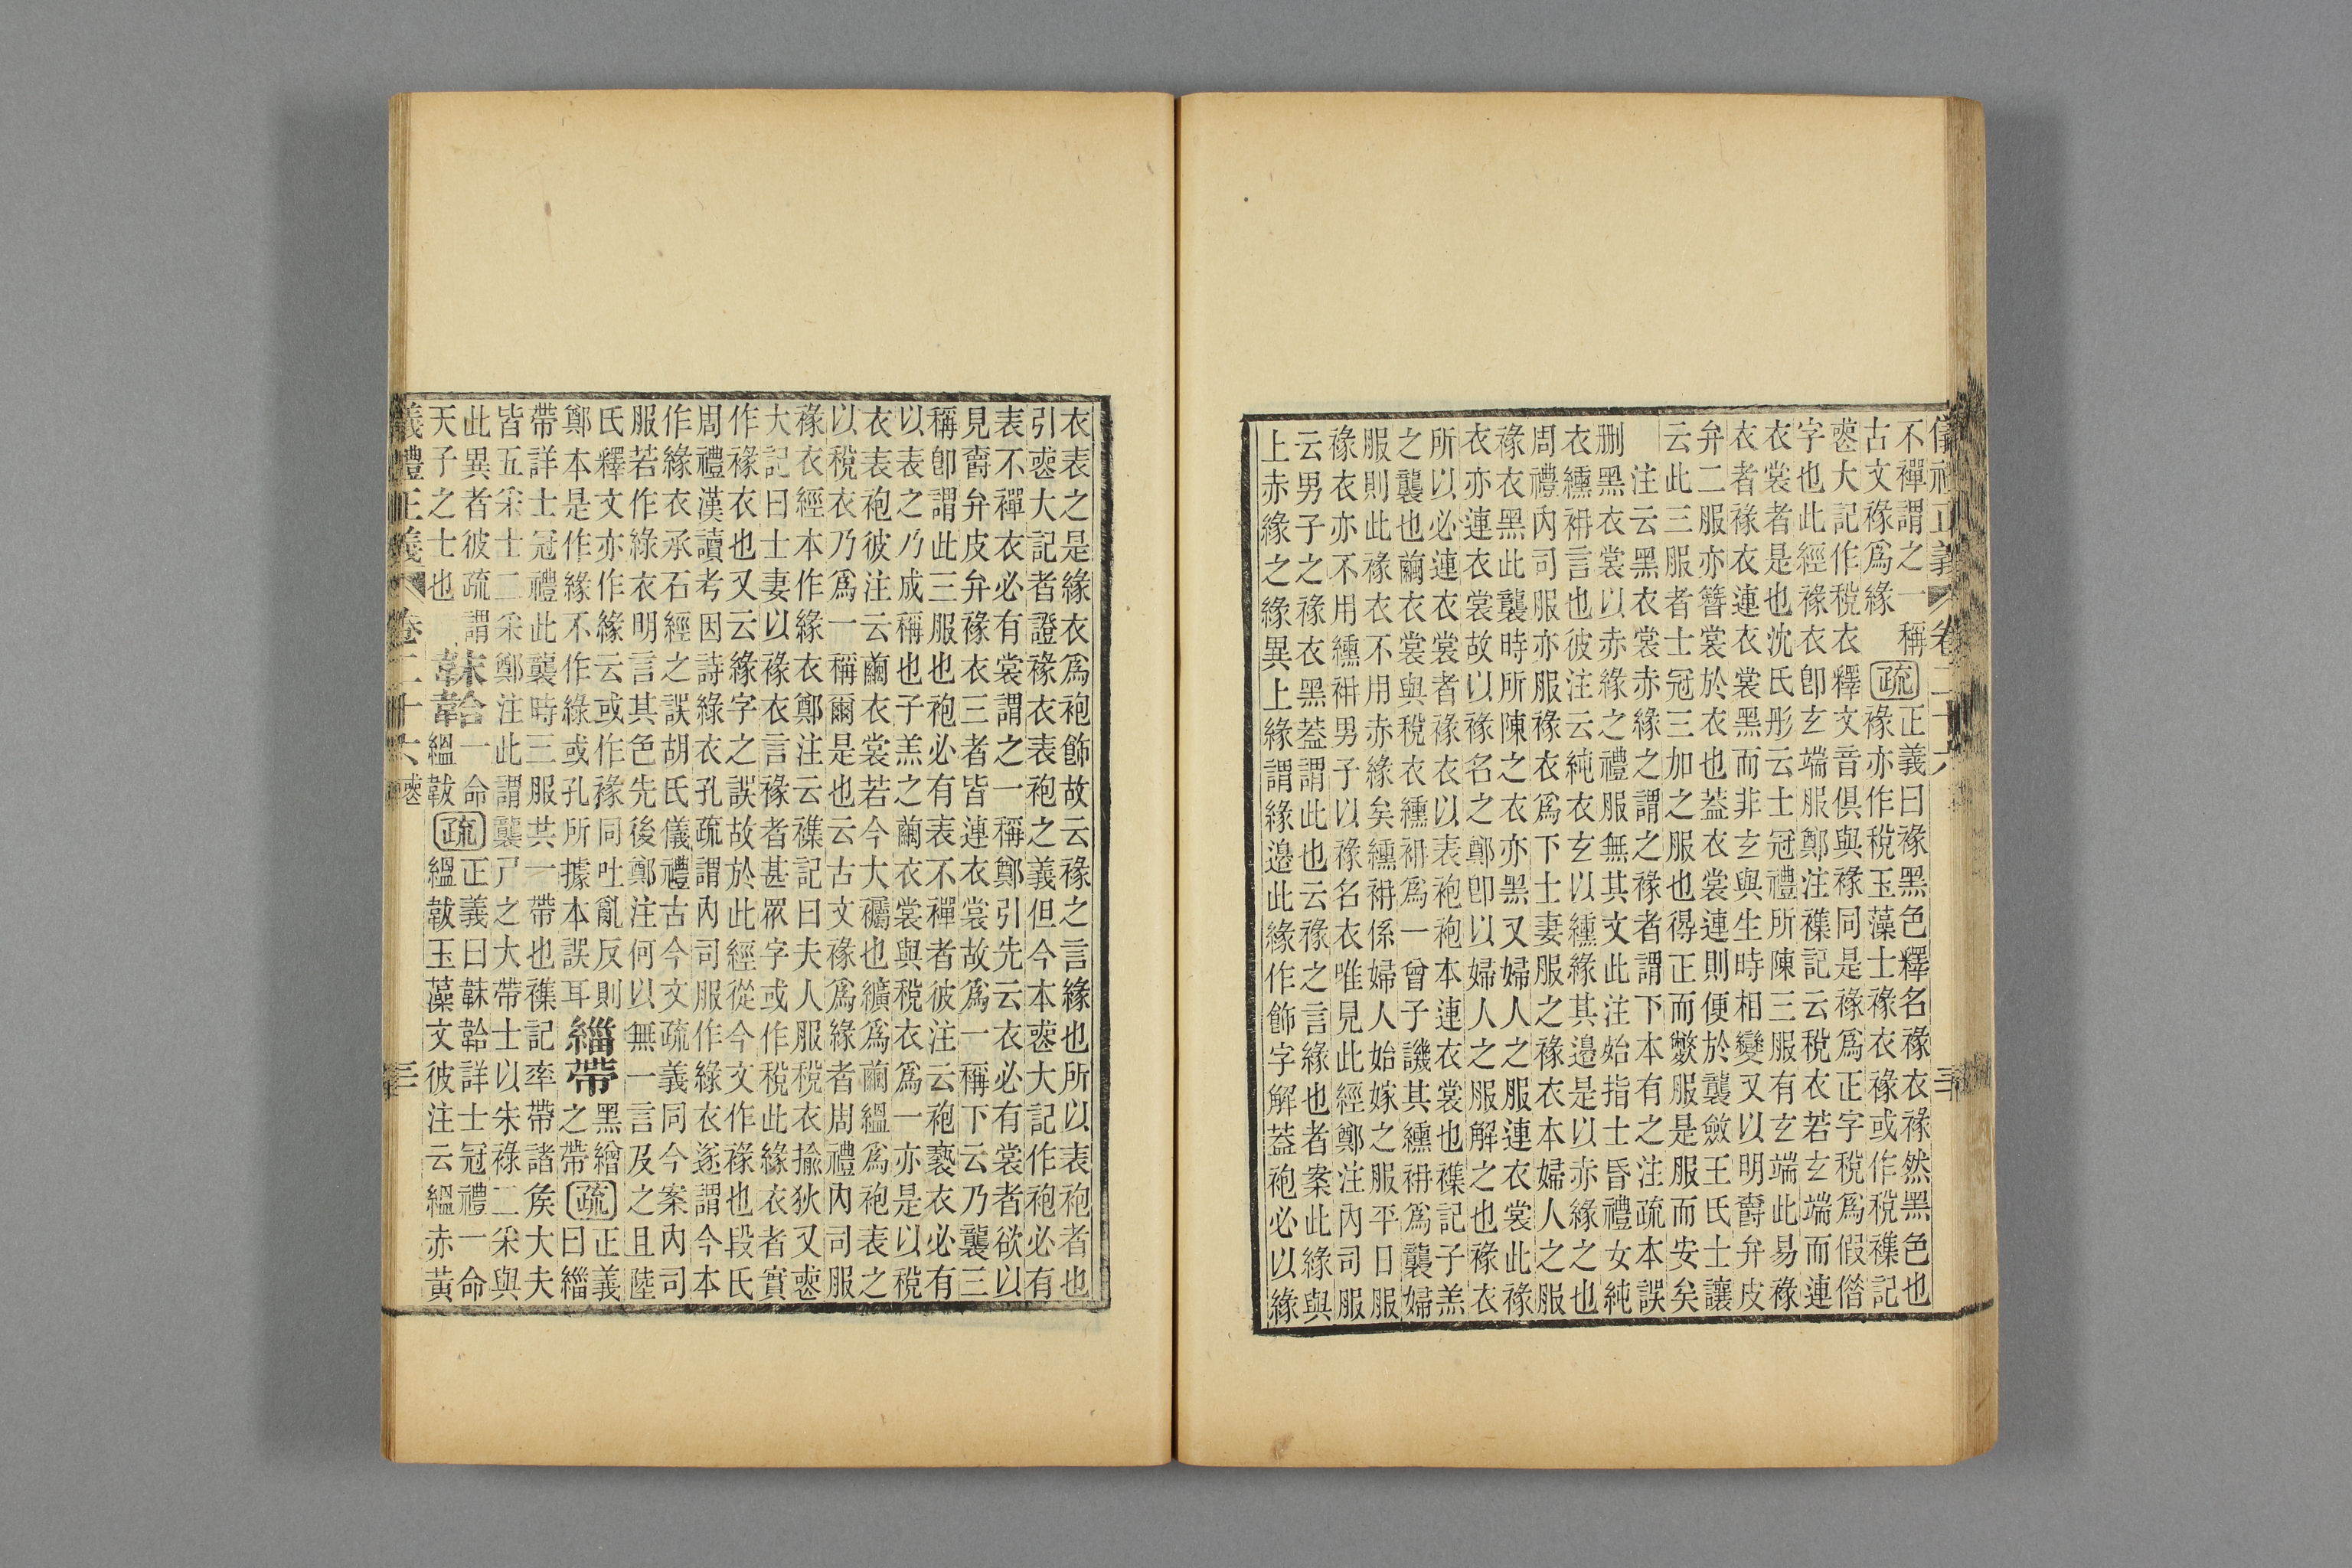 儀禮正義 卷二十六 三
不襌謂之一稱 疏 正義曰褖黑色釋名褖衣褖然黑色也
古文褖爲緣 褖亦作稅玉藻士褖衣褖或作稅襍記
喪大記作稅衣釋文音俱與褖同是褖爲正字稅爲假偕
字也此經褖衣卽玄端服鄭注襍記云稅衣若玄端而連
衣裳者是也沈氏彤云士冠禮所陳三服有玄端此易褖
衣者褖衣連衣裳黑而非玄與生時相變又以明爵弁皮
弁二服亦簪裳於衣也蓋衣裳連則便於襲斂王氏士讓
云此三服者士冠三加之服也得正而斃服是服而安矣
注云黑衣裳赤緣之謂之褖者謂下本有之注疏本誤
刪黑衣裳以赤緣之禮服無其文此注始指士昏禮女純
衣纁袡言也彼注云純衣玄以纁緣其邉是以赤緣之也
周禮內司服亦服褖衣爲下士妻服之褖衣本婦人之服
褖衣黑此襲時所陳之衣亦黑又婦人之服連衣裳此褖
衣亦連衣裳故以褖名之鄭卽以婦人之服解之也褖衣
所以必連衣裳者褖衣以表袍袍本連衣裳也襍記子羔
之襲也繭衣裳與稅衣纁袡爲一曾子譏其纁袡爲襲婦
服則此褖衣不用赤緣矣纁袡係婦人始嫁之服平日服
褖衣亦不用纁袡男子以褖名衣唯見此經鄭注內司服
云男子之褖衣黑蓋謂此也云褖之言緣也者案此緣與
上赤緣之緣異上緣謂緣邉此緣作飾字解蓋袍必以緣
衣表之是緣衣爲袍飾故云褖之言緣也所以表袍者也
引喪大記者證褖衣表袍之義但今本喪大記作袍必有
表不襌衣必有裳謂之一稱鄭引先云衣必有裳者欲以
見爵弁皮弁褖衣三者皆連衣裳故爲一稱下云乃襲三
稱卽謂此三服也袍必有表不襌者彼注云袍褻衣必有
以表之乃成稱也子羔之繭衣裳與稅衣爲一亦是以稅
衣表袍彼注云繭衣裳若今大襡也纊爲繭縕爲袍表之
以稅衣乃爲一稱爾是也云古文褖爲緣者周禮內司服
褖衣經本作緣衣鄭注云襍記曰夫人服稅衣揄狄又喪
大記曰士妻以褖衣言褖者甚眾字或作稅此緣衣者實
作褖衣也又云緣字之誤故於此經從今文作褖也段氏
周禮漢讀考因詩綠衣孔疏謂內司服作綠衣遂謂今本
作緣衣承石經之誤胡氏儀禮古今文疏義同今案內司
服若作綠衣明言其色先後鄭注何以無一言及之且陸
氏釋文亦作緣云或作褖同吐亂反則
鄭本是作緣不作綠或孔所據本誤耳
緇帶
黑繒
之帶
疏
正義
曰緇
帶詳士冠禮此襲時三服共一帶也襍記率帶諸矦大夫
皆五采士二采鄭注此謂襲尸之大帶士以朱祿二采與
此異者彼疏謂
天子之士也
韎韐
一命
縕韍
疏
正義曰韎韐詳士冠禮一命
縕韍玉藻文彼注云縕赤黃
儀禮正義 卷二十六 喪 三